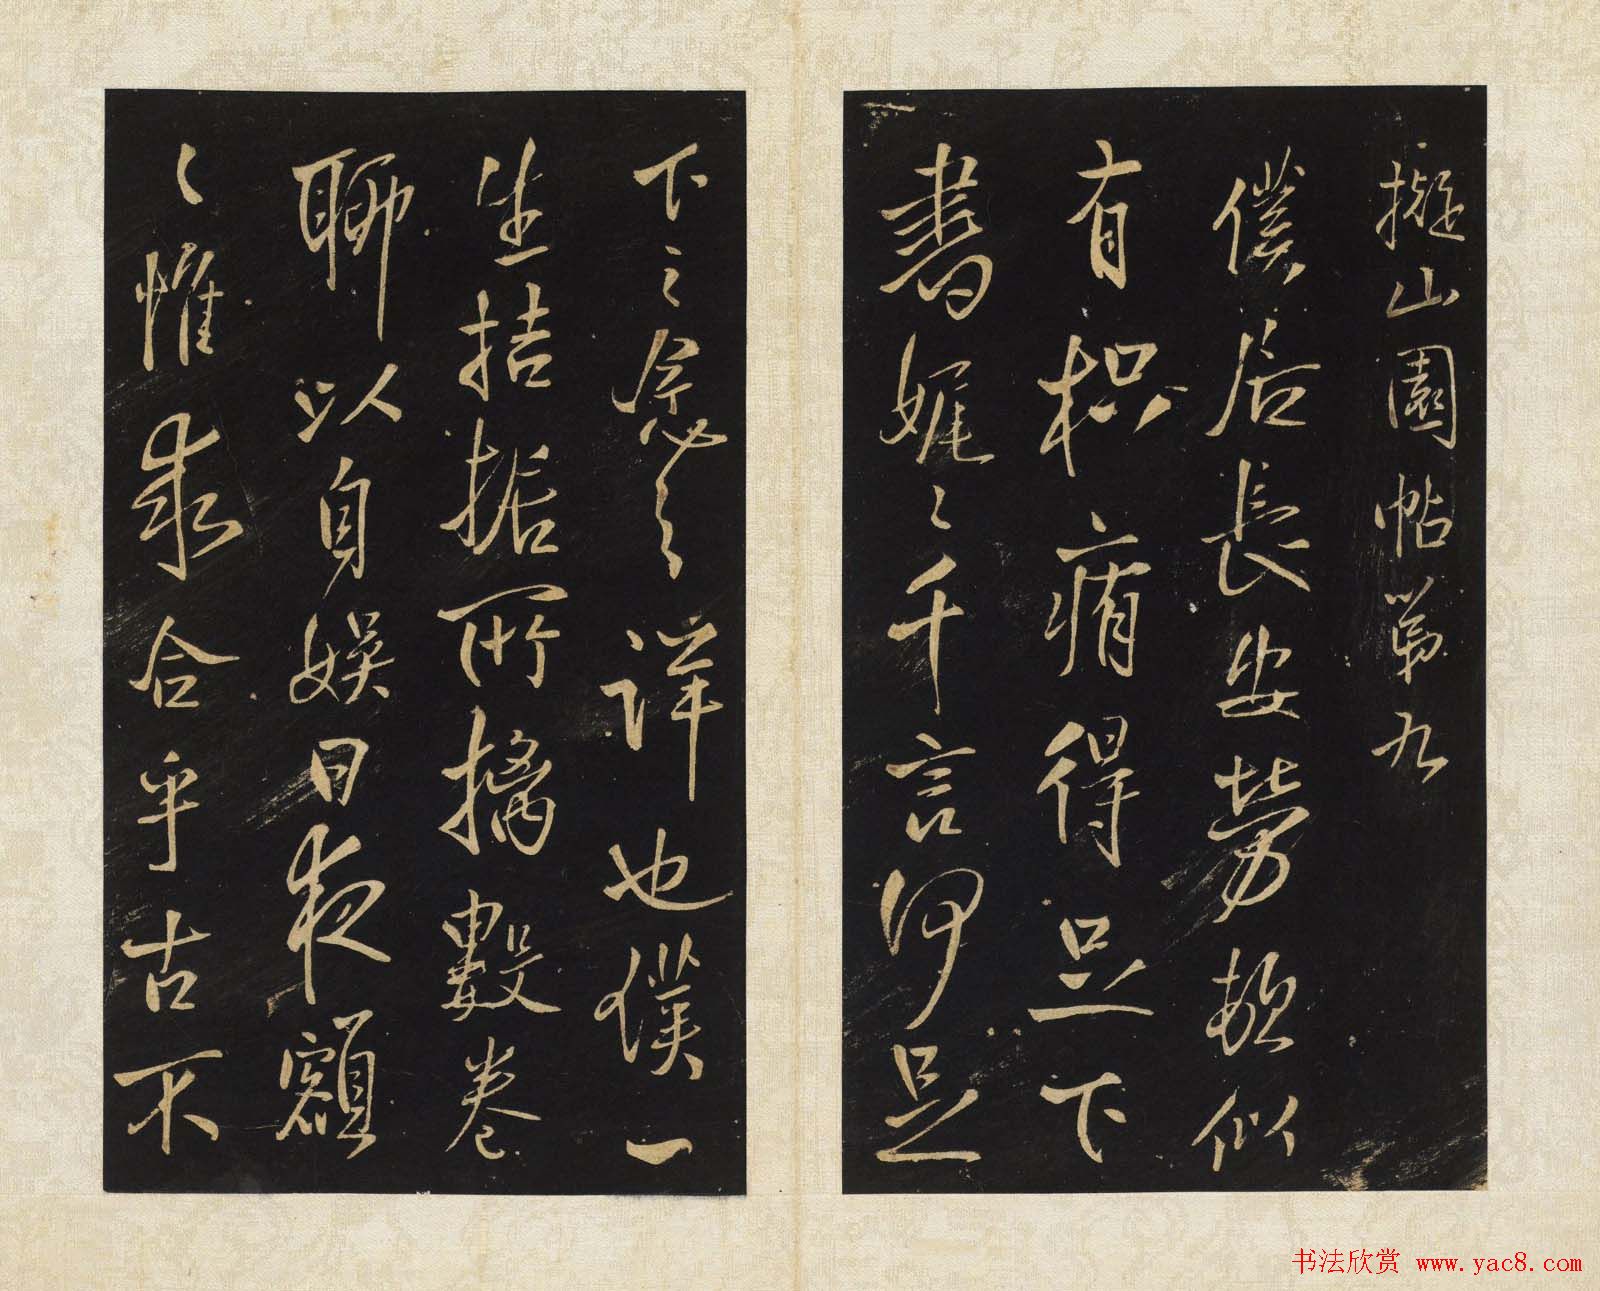 擬山園帖第九
僕居長安勞頓似
有枳痏得足下
書娓〻千言何足
下之念之詳也僕一
生拮据所摛數卷
聊以自娛日夜額
〻惟求合乎古不
书法欣赏 www.yac8.com